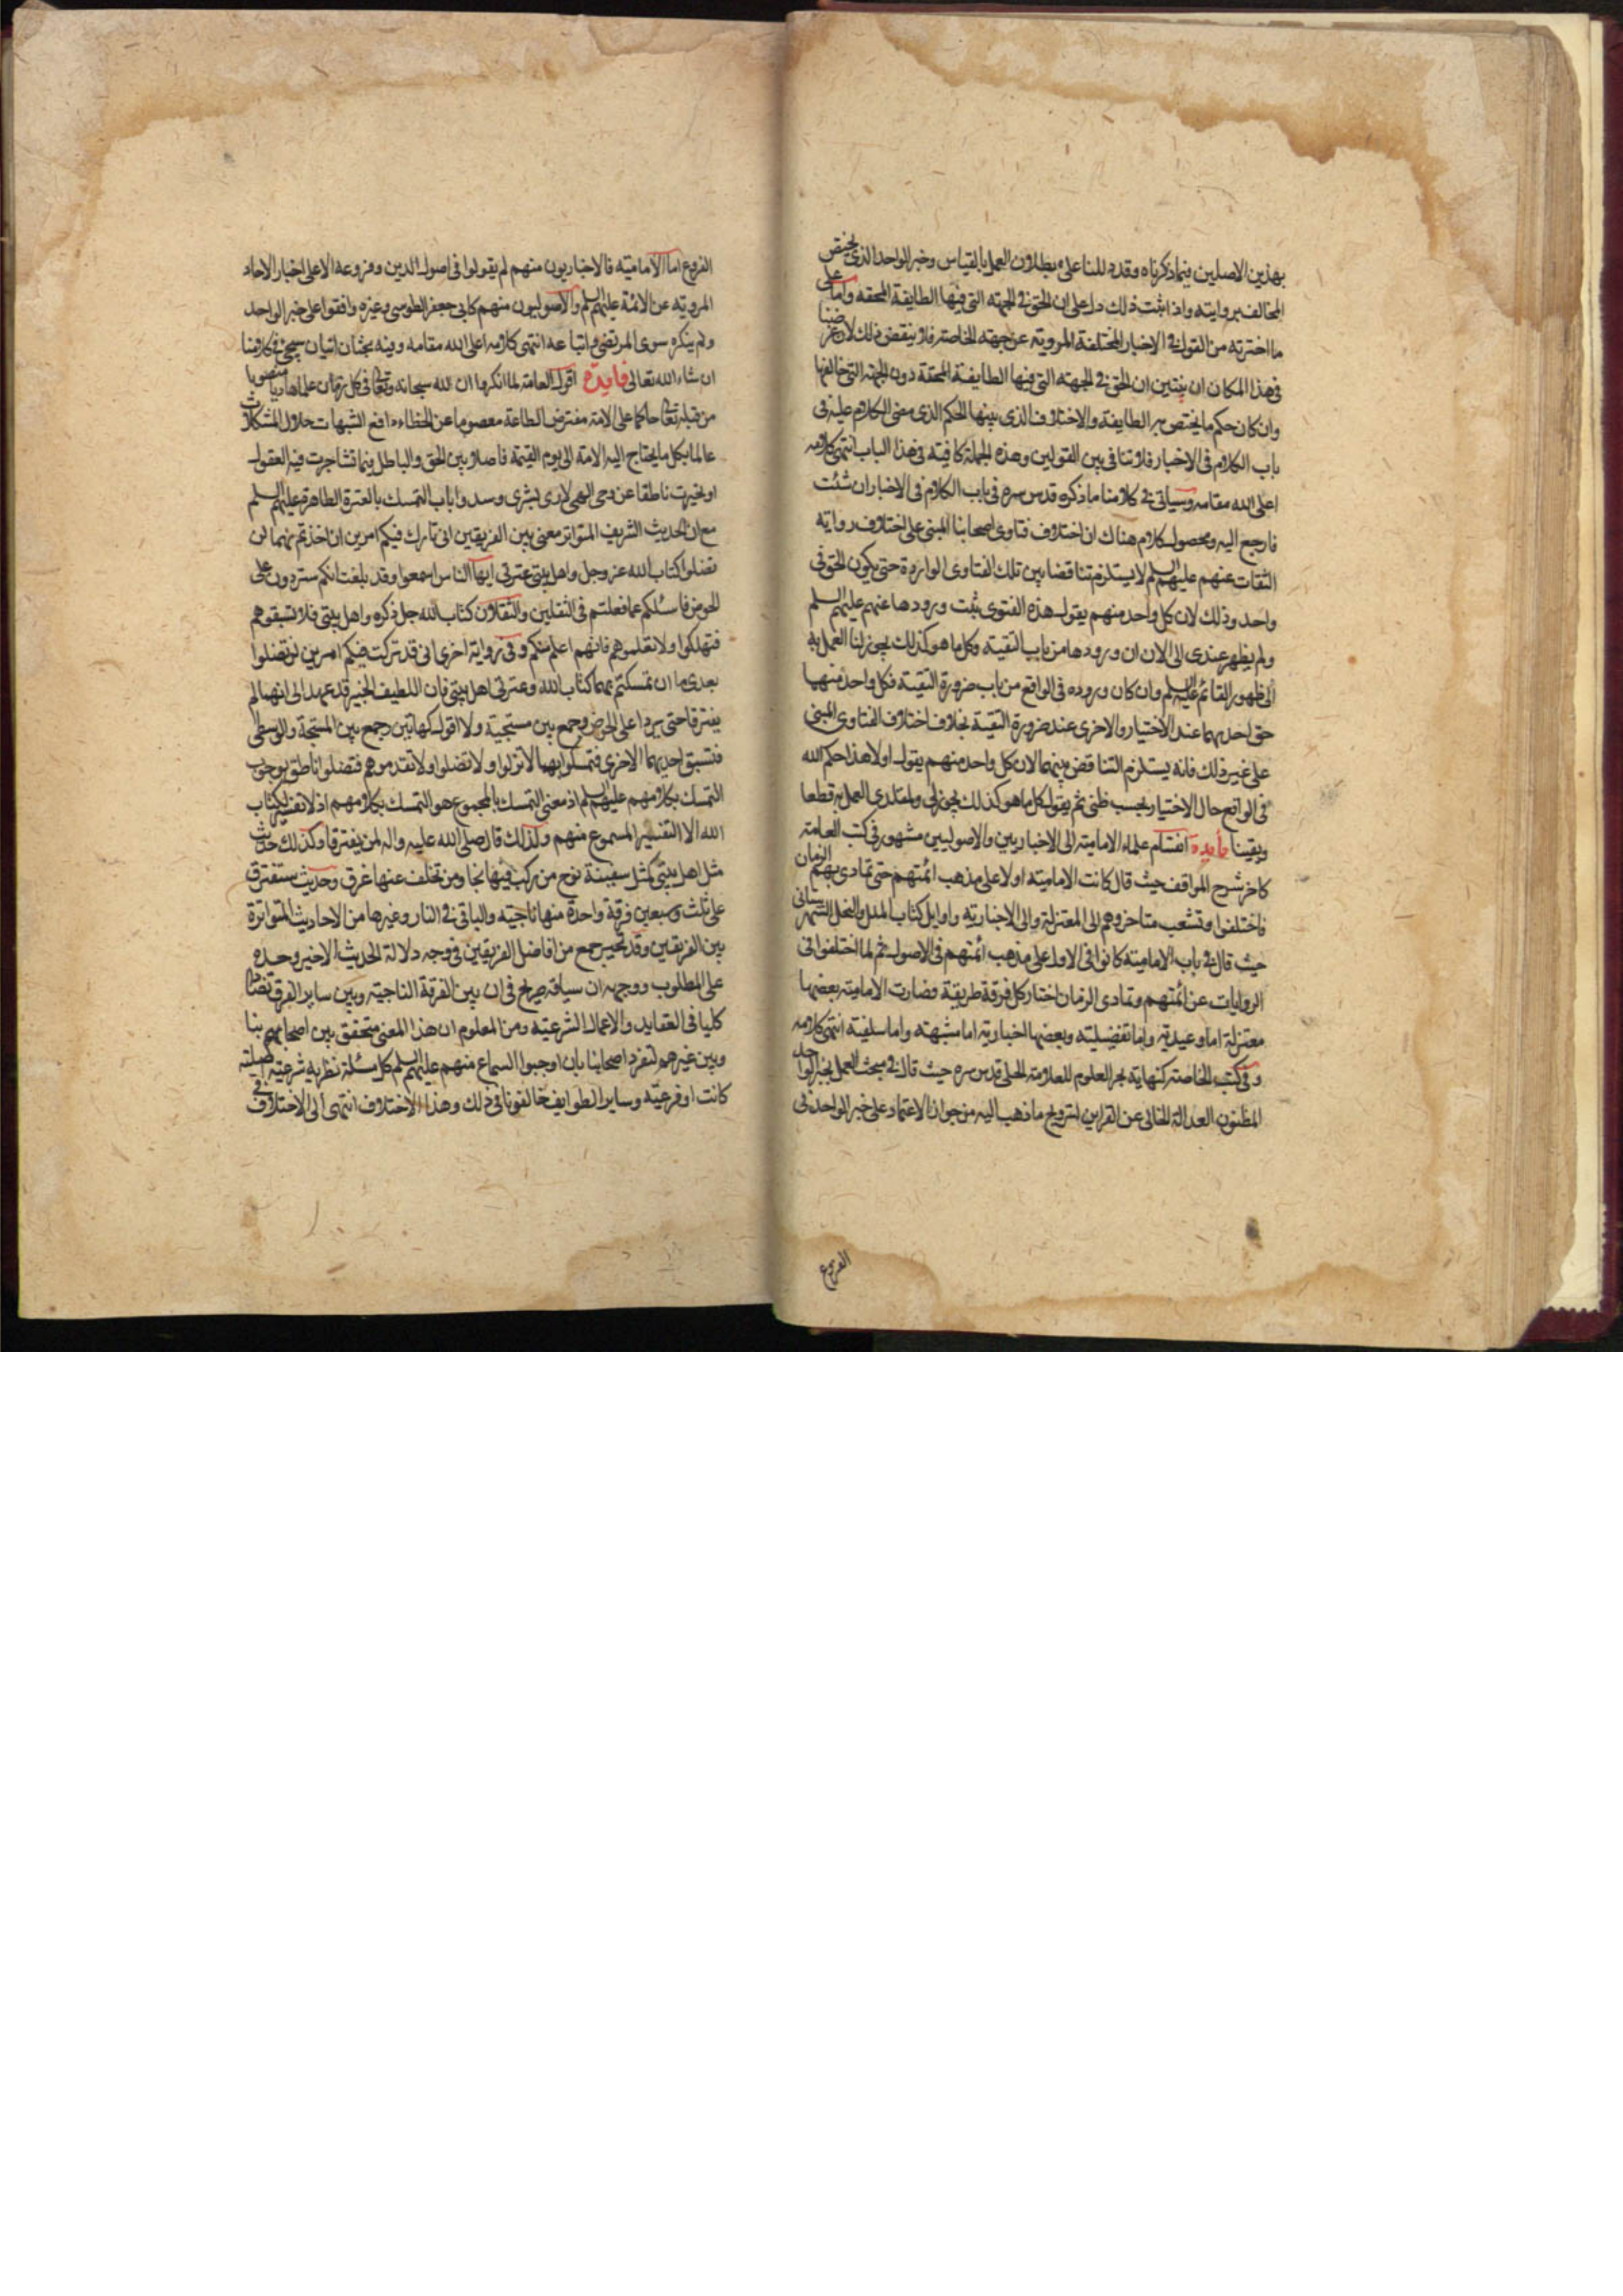 بهذين الاصلين فيما ذكرناه وقد دللنا على بطلان العمل بالقياس وخبر الواحد الذى يختص
المخالف بروايته واذا ثبت ذلك دل على ان الحق في الجهته التى فيها الطايفة المحقه واما على
ما اخترته من القول في الاخبار المختلفة المروية عن جهته الخاصته فلا ينقض ذلك لان غرضنا
في هذا المكان ان يتبين ان الحق في الجهته التى فيها الطايفة المحقة دون الجهته التى خالفها
وان كان حكم ما يختص به الطايفة والاختلاف الذى بينها الحكم الذى مضى الكلام عليه في
باب الكلام فى الاخبار فلا تنافى بين القولين وهذه الجملة كافيته فى هذا الباب انتهى كلامه
اعلى الله مقامه وسياتى في كلامنا ما ذكره قدس سره فى باب الكلام فى الاخبار ان شئت
فارجع اليه ومحصول كلامه هناك ان اختلاف فتاوى اصحابنا المبنى على اختلاف روايته
الثقات عنهم عليهم السلم لا يستلزم تناقضا بين تلك الفتاوى الواردة حتى يكون الحق فى
واحد وذلك لان كل واحد منهم يقول هذه الفتوى ثبت ورودها عنهم عليهم السلم
ولم يظهر عندى الى الان ان ورودها من باب التقيته وكل ما هو كذلك يجوز لنا العمل به
الى ظهور القائم عليه السلم وان كان وروده فى الواقع من باب ضرورة التقيته فكل واحد منهما
حق احديهما عند الاختيار والاخرى عند ضرورة التقيته بخلاف اختلاف الفتاوى المبنى
على غير ذلك فانه يستلزم التناقض بينهما لان كل واحد منهم يقول اولا هذا حكم الله
فى الواقع حال الاختيار بحسب ظنى ثم يقول كل ما هو كذلك يجوز لى ولمقلدى العمل به قطعا
ويقينا فايدة انقسام علماء الاماميته الى الاخباريين والاصوليين مشهور فى كتب العامته
كاخر شرح المواقف حيث قال كانت الاماميته اولا على مذهب ائمتهم حتى تمادى بهم الزمان
فاختلفوا وتشعب متاخروهم الى المعتزلة والى الاخباريه واوايل كتاب الملل والنحل للشهرستانى
حيث قال في باب الاماميته كانوا فى الاول على مذهب ائمتهم فى الاصول ثم لما اختلفوا فى
الروايات عن ائمتهم وتمادى الزمان اختار كل فرقة طريقة فصارت الاماميته بعضها
معتزلة اما وعيديه واما تفضيليته وبعضها اخباريه اما مشبهته واما سلفيته انتهى كلامه
وفى كتب الخاصته كنهاية بحر العلوم للعلامة الحلى قدس سره حيث قال في مبحث العمل بخبر الواحد
المظنون العدالة الخالى عن القراين لترويج ما ذهب اليه من جواز الاعتماد على خبر الواحد فى
الفروع
الفروع اما الاماميته فالاخباريون منهم لم يقولوا فى اصول الدين وفروعه الا على اخبار الاحاد
المرويته عن الائمة عليهم السلم والاصوليون منهم كابى جعفر الطوسى وغيره وافقوا على خبر الواحد
ولم ينكره سوى المرتضى واتباعه انتهى كلامه اعلى الله مقامه وفيه بحثان اتيان سيجئ فى كلامنا
ان شاء الله تعالى فايدة اقول العامة لما انكروا ان لله سبحانه وتعالى فى كل زمان علما هاديا منصوبا
من قبله تعالى حاكما على الامة مفترض الطاعة معصوما عن الخطاء دافع الشبهات حلال المشكلات
عالما بكل ما يحتاج اليه الامة الى يوم القيمة فاصلا بين الحق والباطل فيما تشاجرت فيه العقول
او تحيرت ناطقا عن وحى الهى لا راى بشرى وسدوا باب التمسك بالعترة الطاهرة عليهم السلم
مع ان الحديث الشريف المتواتر معنى بين الفريقين انى تارك فيكم امرين ان اخذتم بهما لن
تضلوا كتاب الله عز وجل واهل بيتى عترتى ايها الناس اسمعوا وقد بلغت انكم ستردون على
الحوض فاسئلكم عما فعلتم فى الثقلين والثقلان كتاب الله جل ذكره واهل بيتى فلا تسبقوهم
فتهلكوا ولا تعلموهم فانهم اعلم منكم وفى رواية اخرى انى قد تركت فيكم امرين لن تضلوا
بعدى ما ان تمسكتم بهما كتاب الله وعترتى اهل بيتى فان اللطيف الخبير قد عهد الى انهما لم
يفترقا حتى يردا على الحوض وجمع بين مسبحيته ولا اقول كهاتين وجمع بين المسبحة والوسطى
فتسبق احديهما الاخرى فتمسكوا بهما لا تزلوا ولا تضلوا ولا تقدموهم فتضلوا ناطق بوجوب
التمسك بكلامهم عليهم السلم اذ معنى التمسك بالمجموع هو التمسك بكلامهم اذ لا تفسير لكتاب
الله الا التفسير المسموع منهم ولذلك قال صلى الله عليه واله لن يفترقا وكذلك حديث
مثل اهل بيتى كمثل سفينة نوح من ركب فيها نجا ومن تخلف عنها غرق وحديث ستفترق
على ثلث وسبعين فرقة واحدة منها ناجيته والباقى في النار وغيرها من الاحاديث المتواترة
بين الفريقين وقد تحير جمع من افاضل الفريقين فى وجه دلالة الحديث الاخير وحده
على المطلوب ووجهه ان سياقه صريح فى ان بين الفرقة الناجيته وبين ساير الفرق تضادا
كليا فى العقايد والاعمال الشرعيته ومن المعلوم ان هذا المعنى متحقق بين اصحابنا
وبين غيرهم لتفرد اصحابنا بان اوجبوا السماع منهم عليهم السلم كل مسئلة نظريه شرعيته اصليته
كانت او فرعيته وساير الطوايف خالفونا فى ذلك وهذا الاختلاف انتهى الى الاختلاف فى